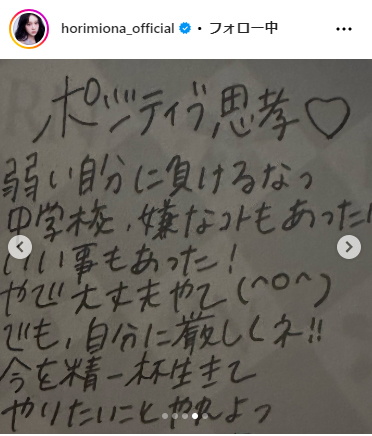 horimiona_official • フォロー中
ポジティブ思考♡
弱い自分に負けるなっ
中学校、嫌なコトもあった!
いい事もあった!
やで大丈夫やて(^o^)
でも、自分に厳しくネ!!
今を精一杯生きて
やりたいことやれよっ